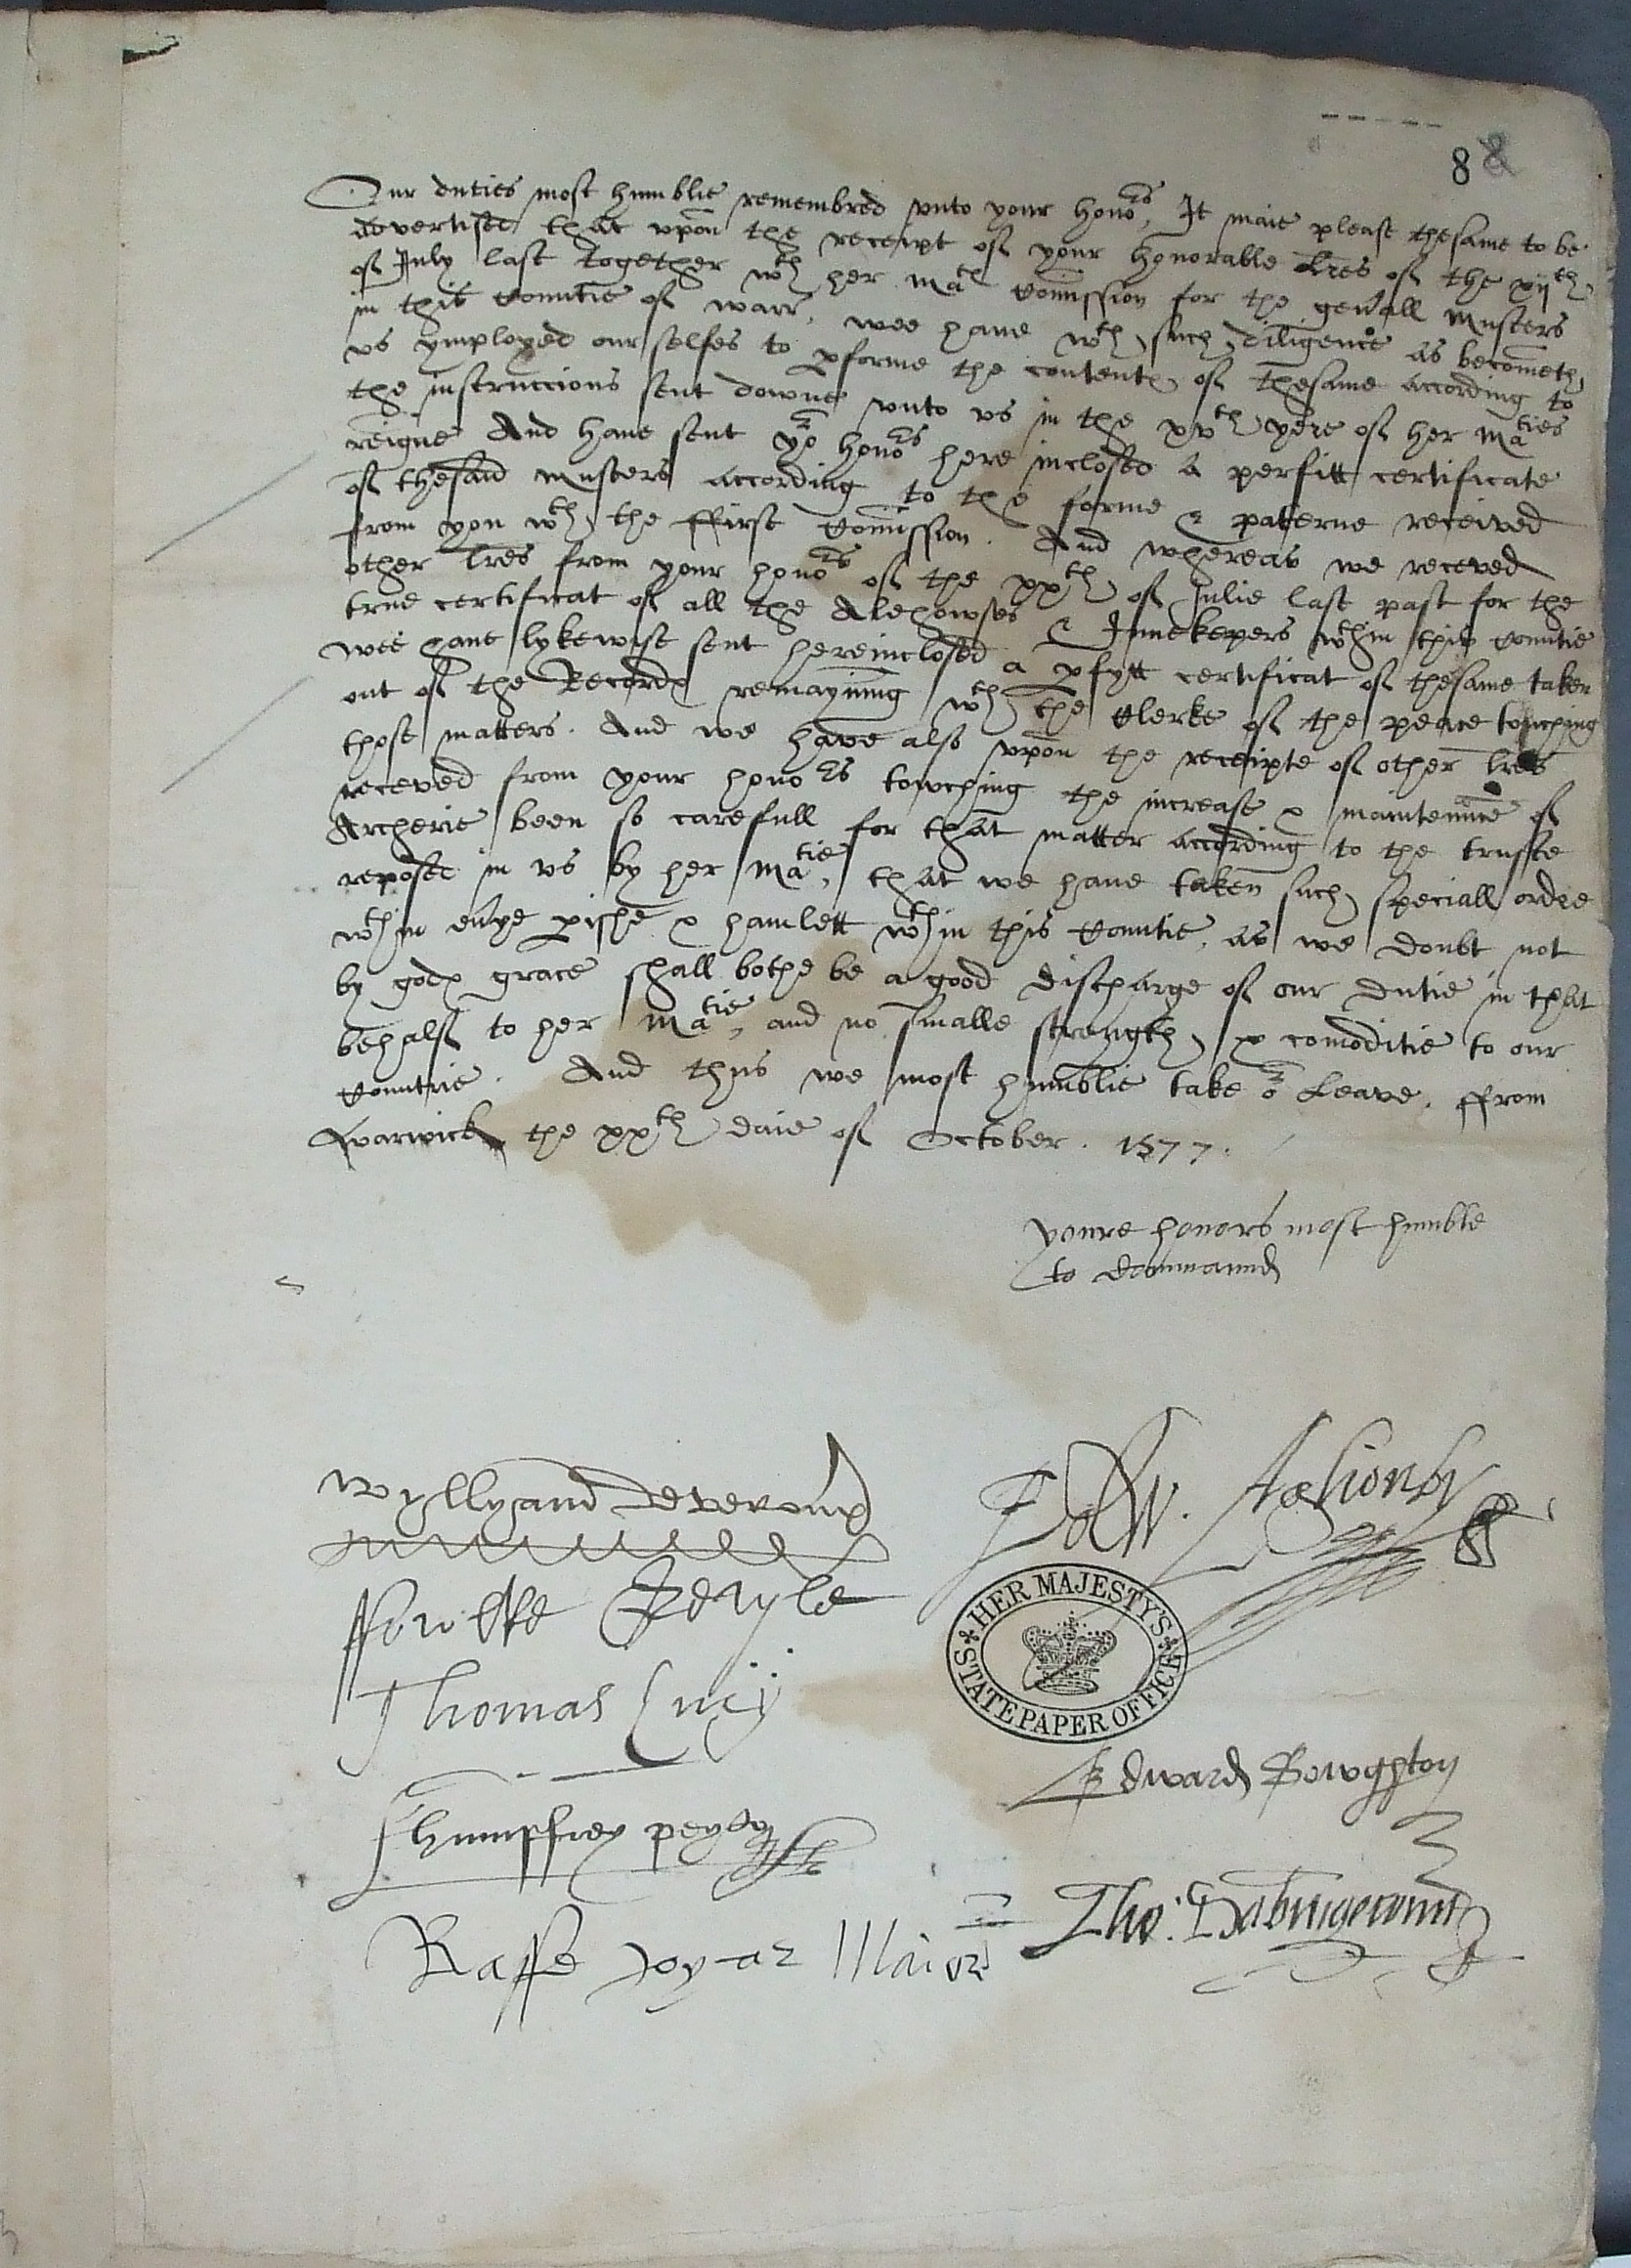 88
Our duties most humblie remembred vnto your hono:rs, It maie please thesame to be
advertised that vpon the receipt of your honorable Lres of the xijth
of July last together wth her Ma:ts Comission for the gen'all musters
in this Countie of warr. wee haue wth such diligence as becometh
vs ymployed our selfes to pforme the contents of thesame according to
the instruccions sent downe vnto vs in the xvth yere of her Maties
reigne And haue sent yor honors here inclosed a perfitt certificate
of thesaid musters according to the forme & paterne received
from you wth the ffirst Comission. And whereas we receved
other lres from your honors of the xxth of Julie last past for the
true certificat of all the Alehowses & Innekepers wthin this Countie
wee haue lykewise sent hereinclosed a pfytt certificat of thesame taken
out of the Records remayning wth the Clerke of the peace touching
those matters. And we have also vpon the receipte of other lres
receved from your honors towching the increase & maintenince of
Archerie been so carefull for that matter according to the truste
reposed in vs by her Matie, that we haue taken such speciall ordre
wthin eu'ye pishe & hamlett wthin this Countie, as we doubt not
by gods grace shall bothe be a good discharge of our dutie in that
behalf to her Matie, and no smalle strength & comoditie to our
Countrie. And thus we most humblie take or Leave. ffrom
Warwick the xxth daie of October. 1577.
youre honors most humble
to Commaund
Wyllyam deveroux
Edw. Aglionby
ffowlke Grevyle
HER MAJESTY'S STATE PAPER OFFICE
Thomas Lucy
Edward Bowghton
humffrey peyto
Tho: Dabrigecourt
Raffe Maior